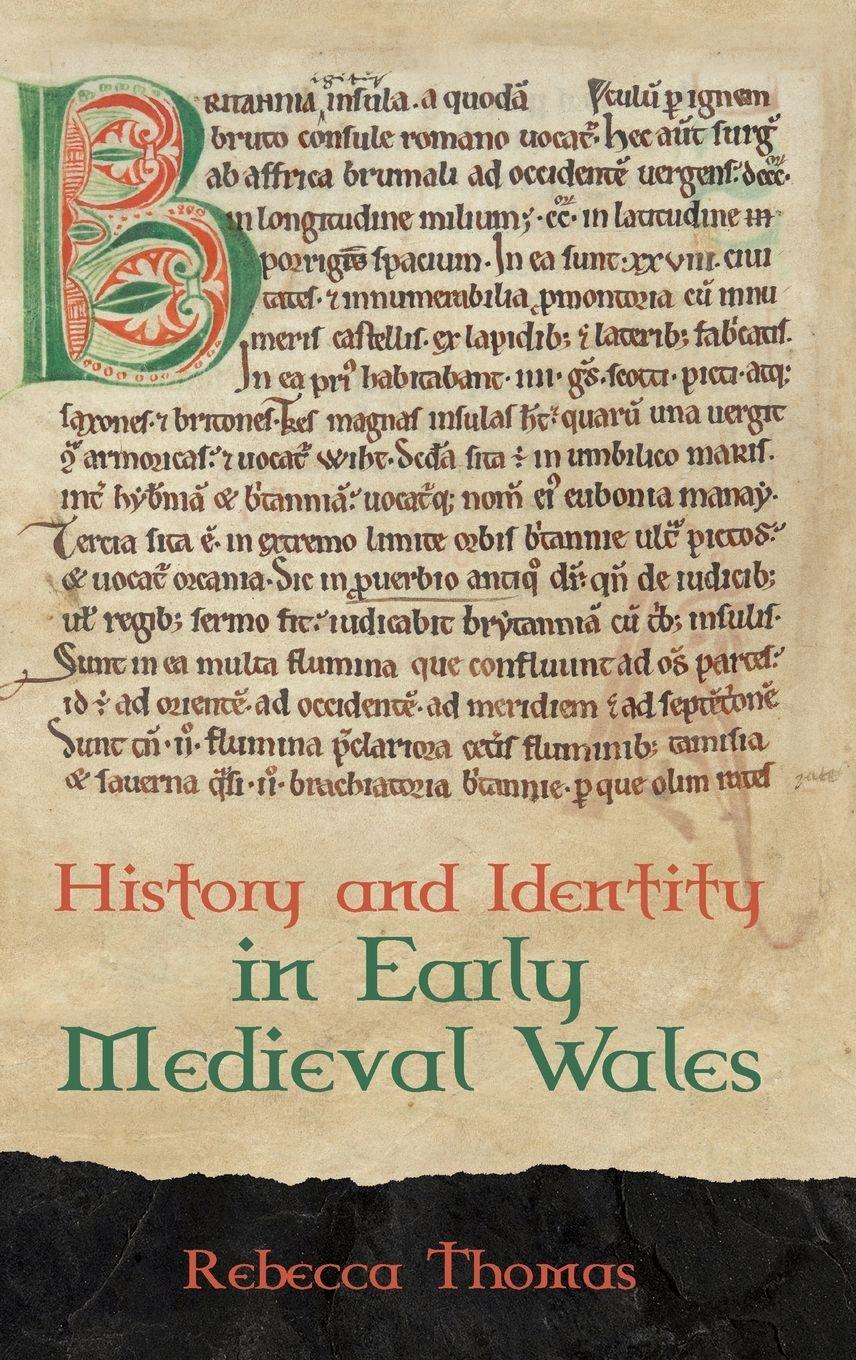 igitur
BRITANNIA insula. a quodā
bruto consule romano uocat̄. hec aūt surḡ
ab affrica brumali ad occidentē uergens. dccc.
in longitudine milium; .cc. in latitudine in
spacium. In ea sunt .xxviii. ciui
tates. ⁊ innumerabilia ꝓmontoria cū innu
meris castellis. ex lapidib; ⁊ laterib; fab̄catis.
In ea pri habitabant .iiii. scotti. picti. atq;
saxones. ⁊ britones. magnas insulas quarū una uergit
armoricas. ⁊ uocat̄ wiht. sita in umbilico maris.
hyb̄niā & b̄tanniā. uocat̄q; nom̄ ei eubonia manay.
Tercia sita ē. in extremo limite orbis b̄tannie pictos.
& uocat̄ orcania. Sic in ꝓuerbio antiq̊ dr̄. qn̄ de iudicib;
ul̄ regib; sermo fit. iudicabit brytanniā cū insulis.
Sunt in ea multa flumina que confluunt ad partes.
ad orientē. ad occidentē. ad meridiem ⁊ ad
Sunt .ii. flumina p̄clariora fluminib; tamisia
& sauerna .ii. brachiatoria b̄tannie. ꝑ que olim rates
History and Identity
in Early
Medieval Wales
Rebecca Thomas